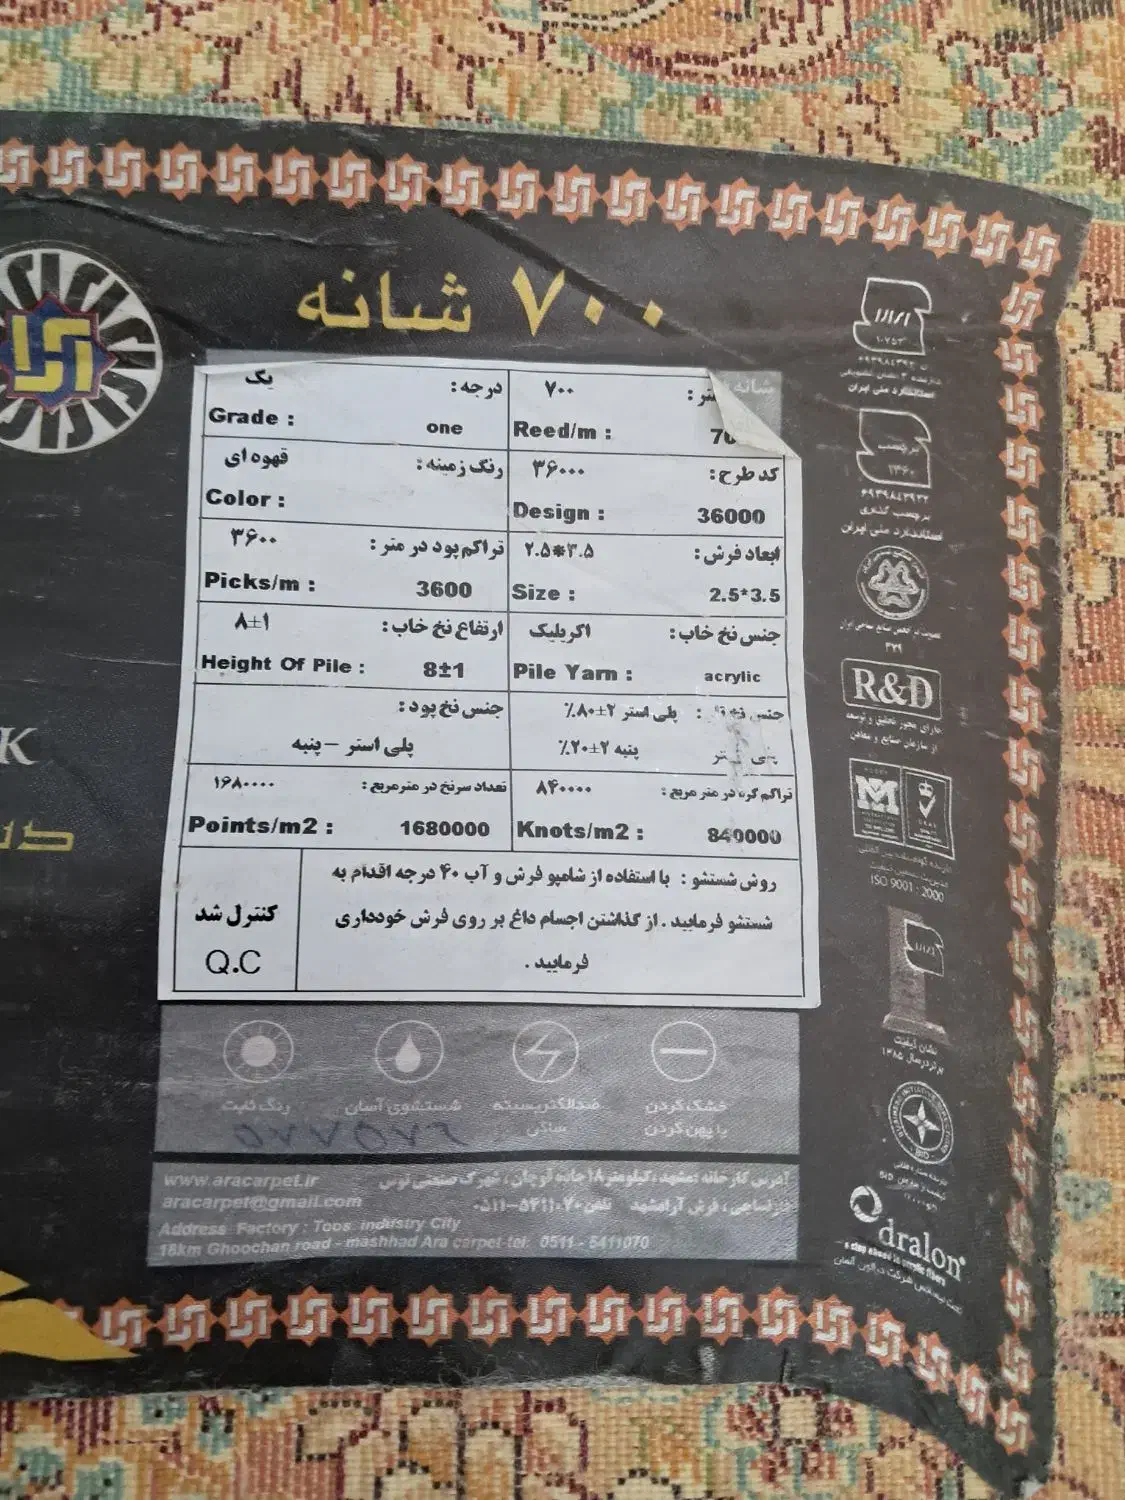 ۷۰۰ شانه
شانه
متر:
۷۰۰
Reed/m :
درجه:
یک
Grade :
one
کد طرح:
۳۶۰۰۰
Design :
36000
رنگ زمینه:
قهوه ای
Color :
ابعاد فرش:
۲.۵*۳.۵
Size :
2.5*3.5
تراکم پود در متر:
۳۶۰۰
Picks/m :
3600
جنس نخ خاب:
اکریلیک
Pile Yarn :
acrylic
ارتفاع نخ خاب:
۸±۱
Height Of Pile :
8±1
جنس نخ
پلی استر ۲±۸۰٪
پنبه ۲±۲۰٪
جنس نخ پود:
پلی استر – پنبه
تراکم گره در متر مربع:
۸۴۰۰۰۰
Knots/m2 :
840000
تعداد سرنخ در مترمربع:
۱۶۸۰۰۰۰
Points/m2 :
1680000
روش شستشو : با استفاده از شامپو فرش و آب ۴۰ درجه اقدام به
شستشو فرمایید . از گذاشتن اجسام داغ بر روی فرش خودداری
فرمایید .
کنترل شد
Q.C
خشک کردن
با پهن کردن
ضدالکتریسیته
ساکن
شستشوی آسان
رنگ ثابت
آدرس کارخانه :مشهد،کیلومتر۱۸جاده قوچان ، شهرک صنعتی توس
فرش آرامشهد تلفن:۵۴۱۱۰۷۰-۰۵۱۱
www.aracarpet.ir
aracarpet@gmail.com
Address Factory : Toos industry City
18km Ghoochan road - mashhad Ara carpet-tel: 0511 - 5411070
استاندارد ملی ایران
استاندارد ملی ایران
R&D
دارای مجوز تحقیق و توسعه
از سازمان صنایع و معادن
ISO 9001 : 2000
نشان کیفیت
برتر در سال ۱۳۸۵
dralon®
a step ahead in acrylic fibers